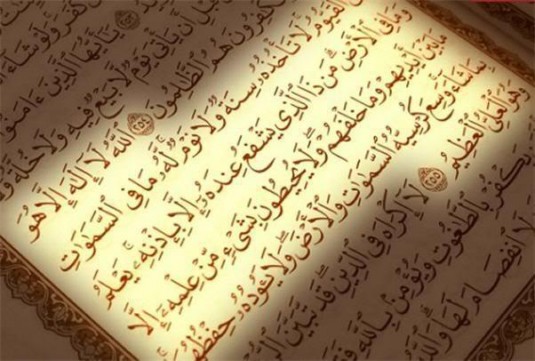 يَٰٓأَيُّهَا ٱلَّذِينَ ءَامَنُو
أَن يَأْتِىَ يَوْمٌ لَّا بَيْعٌ فِيهِ وَلَا خُلَّةٌ و
كَٰفِرُونَ هُمُ ٱلظَّٰلِمُونَ ٢٥٤ ٱللَّهُ لَآ إِلَٰهَ إِلَّا هُوَ
ٱلْقَيُّومُ لَا تَأْخُذُهُۥ سِنَةٌ وَلَا نَوْمٌ لَّهُۥ مَا فِى ٱلسَّمَٰوَٰتِ
وَمَا فِى ٱلْأَرْضِ مَن ذَا ٱلَّذِى يَشْفَعُ عِندَهُۥٓ إِلَّا بِإِذْنِهِۦ يَعْلَمُ
مَا بَيْنَ أَيْدِيهِمْ وَمَا خَلْفَهُمْ وَلَا يُحِيطُونَ بِشَىْءٍ مِّنْ عِلْمِهِۦٓ إِلَّا
بِمَا شَآءَ وَسِعَ كُرْسِيُّهُ ٱلسَّمَٰوَٰتِ وَٱلْأَرْضَ وَلَا يَـُٔودُهُۥ حِفْظُهُمَا
وَهُوَ ٱلْعَلِىُّ ٱلْعَظِيمُ ٢٥٥ لَآ إِكْرَاهَ فِى ٱلدِّينِ قَد تَّبَيَّنَ
يَكْفُرْ بِٱلطَّٰغُوتِ وَيُؤْمِنۢ بِٱللَّهِ فَقَدِ
لَا ٱنفِصَامَ لَهَا وَٱللَّهُ